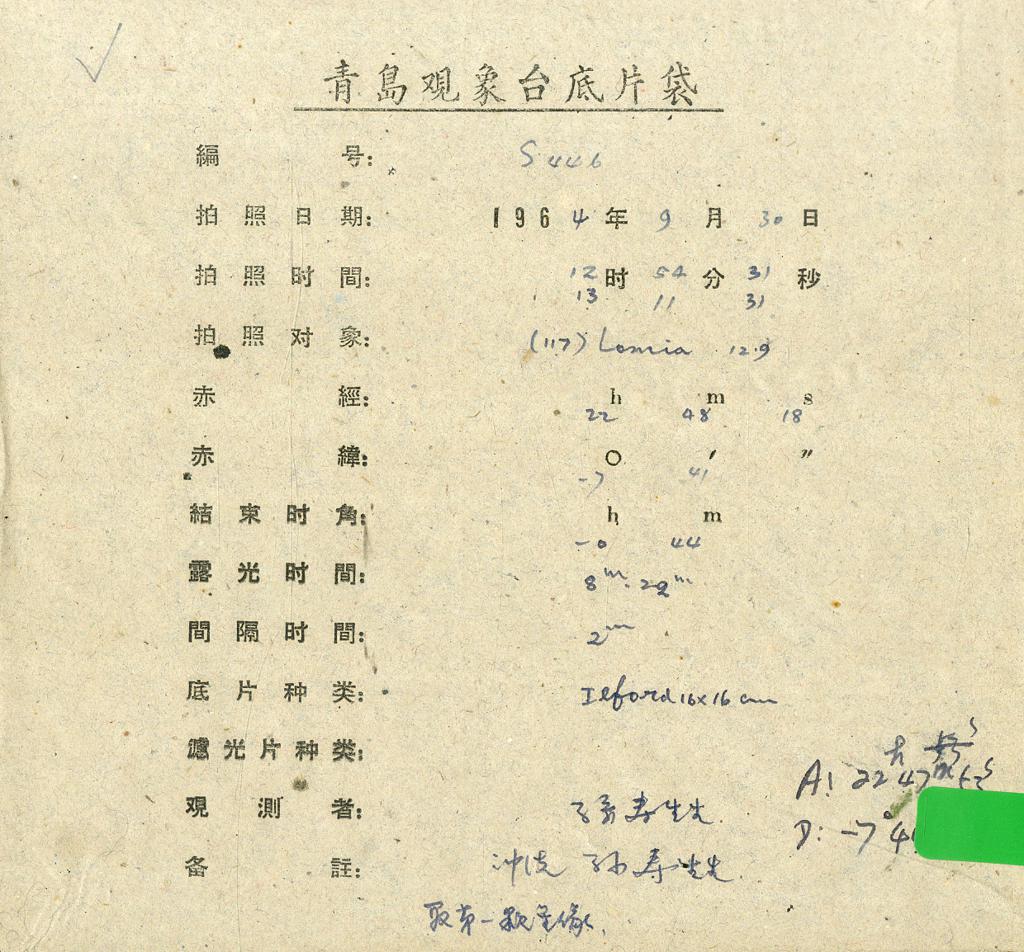 青島观象台底片袋
編号: S446
拍照日期: 1964年9月30日
拍照时間: 12时54分31秒
13 11 31
拍照对象: (117) Lomia 12.9
赤經: h m s
22 48 18
赤緯: ○ ′ ″
-7 41
結束时角: h m
-0 44
露光时間: 8m. 22m
間隔时間: 2m
底片种类: Ilford 16×16 cm
濾光片种类:
观測者: 孙寿
A: 22h 47m
D: -7° 4
备註: 冲洗 孙寿
取第一颗星像.